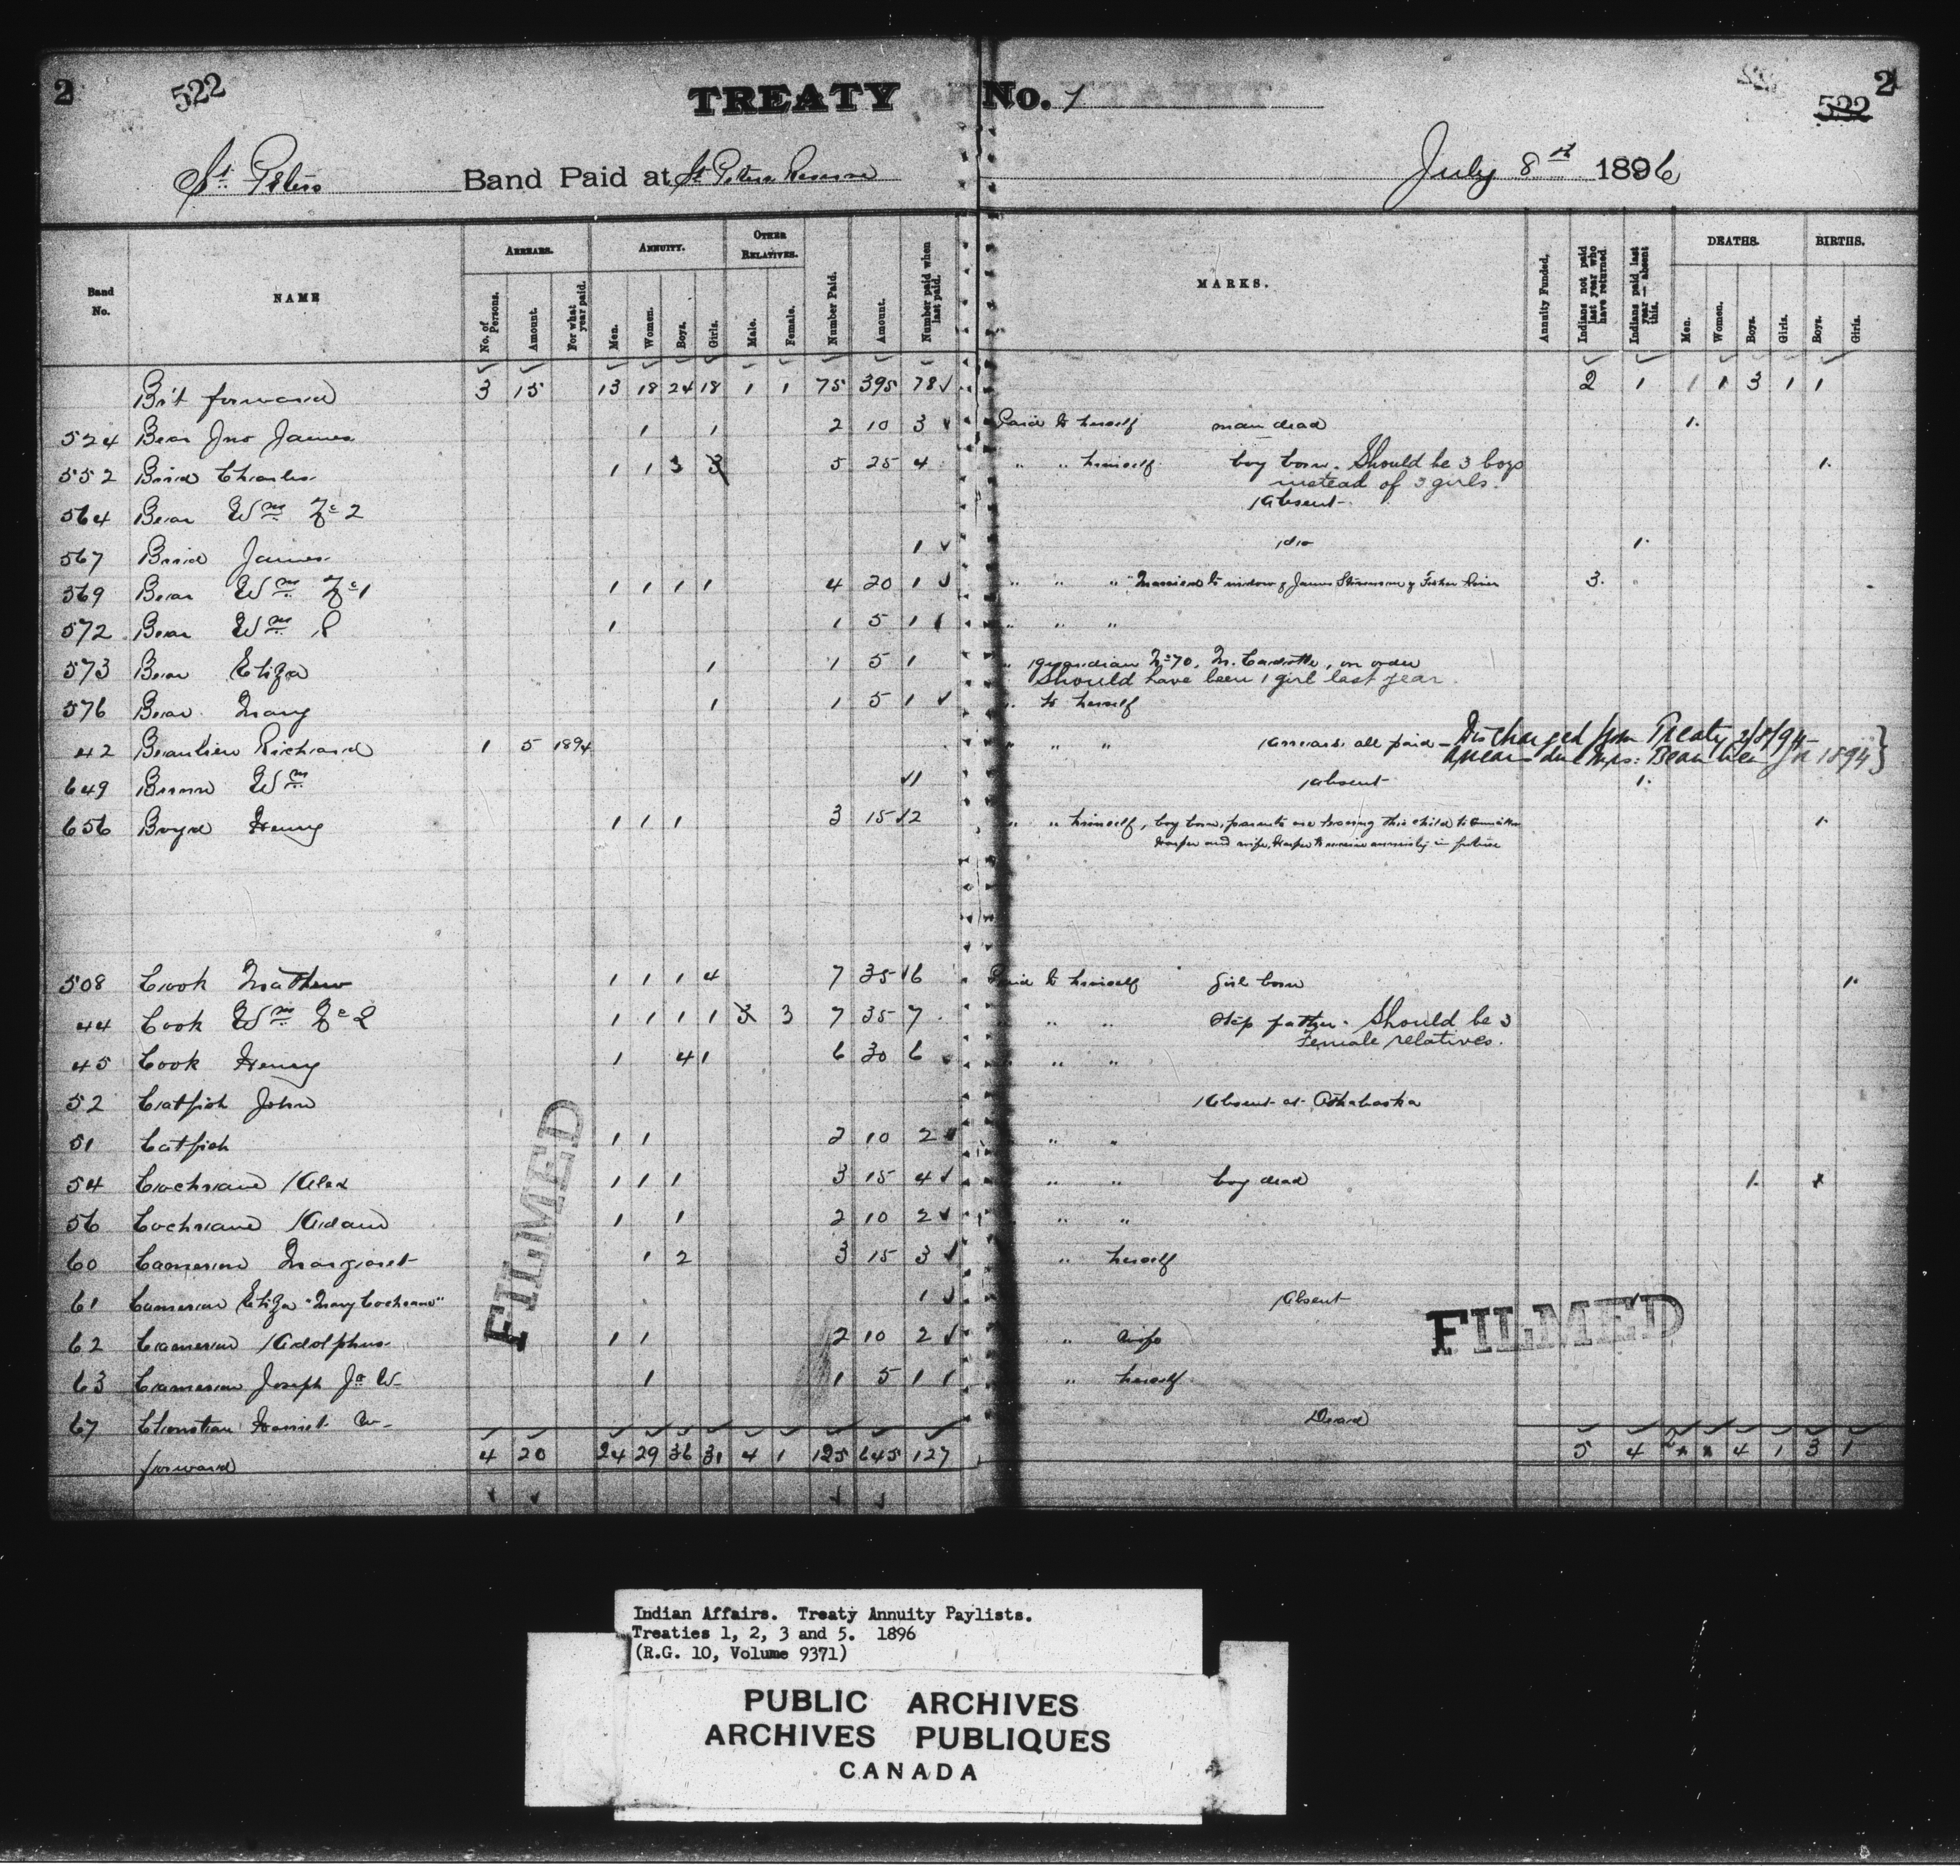 2 522 TREATY No. 1 522 2
St. Peters Band Paid at St Peters Reserve July 8th 1896
Band No. NAME ARREARS. ANNUITY. OTHER RELATIVES. Number Paid. Amount. Number paid when last paid. MARKS. Annuity Funded. Indians not paid last year who have returned. Indians paid last year — absent this. DEATHS. BIRTHS.
No. of Persons. Amount. For what year paid. Men. Women. Boys. Girls. Male. Female. Men. Women. Boys. Girls. Boys. Girls.
Br't forward 3 15 13 18 24 18 1 1 75 395 78 ✓ 2 1 1 1 3 1 1
524 Bear Jno James 1 1 2 10 3 ✓ Paid to herself man dead 1.
552 Bird Charles 1 1 3 3 5 25 4 " " himself boy born. Should be 3 boys 1.
instead of 3 girls.
564 Bear Wm No 2 Absent
567 Bird James 1 ✓ do 1.
569 Bear Wm No 1 1 1 1 1 4 20 1 ✓ " " " Married to widow of James Stevenson of Fisher River 3.
572 Bear Wm S 1 1 5 1 " " "
573 Bear Eliza 1 1 5 1 " guardian No 70, on order
Should have been 1 girl last year.
576 Bear Mary 1 1 5 1 ✓ " to herself
42 Beaulieu Richard 1 5 1894 " " " Arrears all paid - Discharged from Treaty 2/8/94
arrears due Mrs. Beaulieu for 1894 }
649 Brown Wm ✓1 Absent 1.
656 Boyd Henry 1 1 1 3 15 ✓2 " " himself, boy born, parents are leaving this child to
Harper and wife, Harper to receive annuity in future 1.
508 Cook Mathew 1 1 1 4 7 35 ✓6 Paid to himself Girl born 1.
44 Cook Wm No 2 1 1 1 1 3 3 7 35 7 " " " Step father. Should be 3
Female relatives.
45 Cook Henry 1 4 1 6 30 6 " " "
52 Catfish John Absent at Athabaska
51 Catfish 1 1 2 10 2 " "
54 Cochrane Alex 1 1 1 3 15 4 ✓ " " boy dead 1.
56 Cochrane Adam 1 1 2 10 2 ✓ " "
60 Cameron Margaret 1 2 3 15 3 ✓ " herself
61 Cameron Eliza "Mary Cochrane" 1 ✓ Absent
62 Cameron Adolphus 1 1 2 10 2 ✓ " wife
63 Cameron Joseph Jr W- 1 1 5 1 1 " herself
67 Christian Harriet W- Dead
forward 4 20 24 29 36 31 4 1 125 645 127 5 4 2 4 1 3 1
FILMED
FILMED
Indian Affairs. Treaty Annuity Paylists.
Treaties 1, 2, 3 and 5. 1896
(R.G. 10, Volume 9371)
PUBLIC ARCHIVES
ARCHIVES PUBLIQUES
CANADA